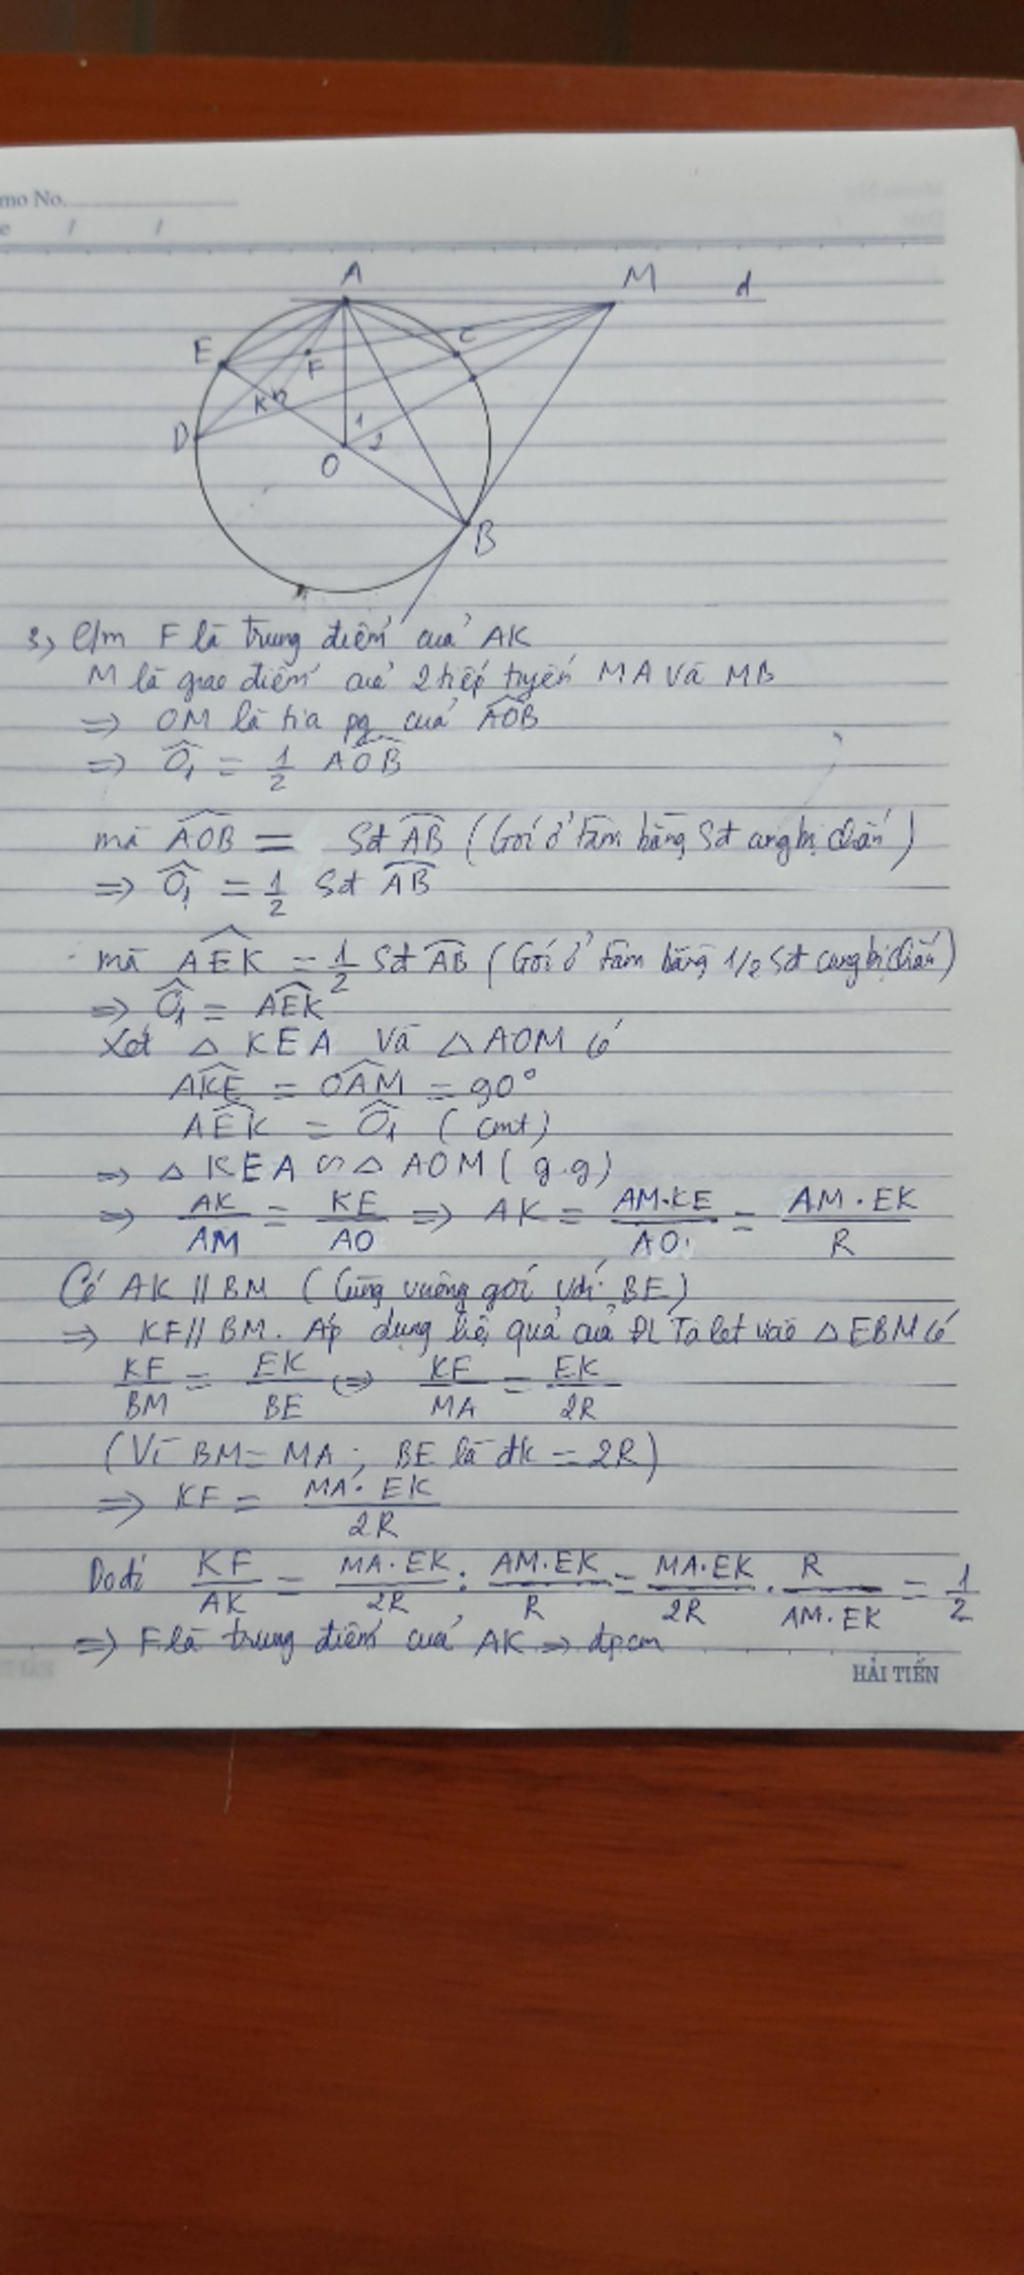 mo No.
e / /
A
M
d
E
C
F
K
D
1
2
O
B
3, c/m F là trung điểm của AK
M là giao điểm của 2 tiếp tuyến MA và MB
=> OM là tia pg của AOB
=> O₁ = 1/2 AOB
mà AOB = Sđ AB (Góc ở tâm bằng Sđ cung bị chắn)
=> O₁ = 1/2 Sđ AB
mà AEK = 1/2 Sđ AB (Góc ở tâm bằng 1/2 Sđ cung bị chắn)
=> O₁ = AEK
Xét △ KEA và △ AOM có
AKE = OAM = 90°
AEK = O₁ (cmt)
=> △ KEA ∽ △ AOM (g.g)
=> AK/AM = KE/AO => AK = AM.KE/AO = AM.EK/R
Có AK // BM (Cùng vuông góc với BE)
=> KF // BM. Áp dụng hệ quả của ĐL Talet vào △ EBM có
KF/BM = EK/BE <=> KF/MA = EK/2R
(Vì BM = MA; BE là đk = 2R)
=> KF = MA.EK/2R
Do đó KF/AK = MA.EK/2R : AM.EK/R = MA.EK/2R . R/AM.EK = 1/2
=> F là trung điểm của AK => đpcm
HẢI TIẾN